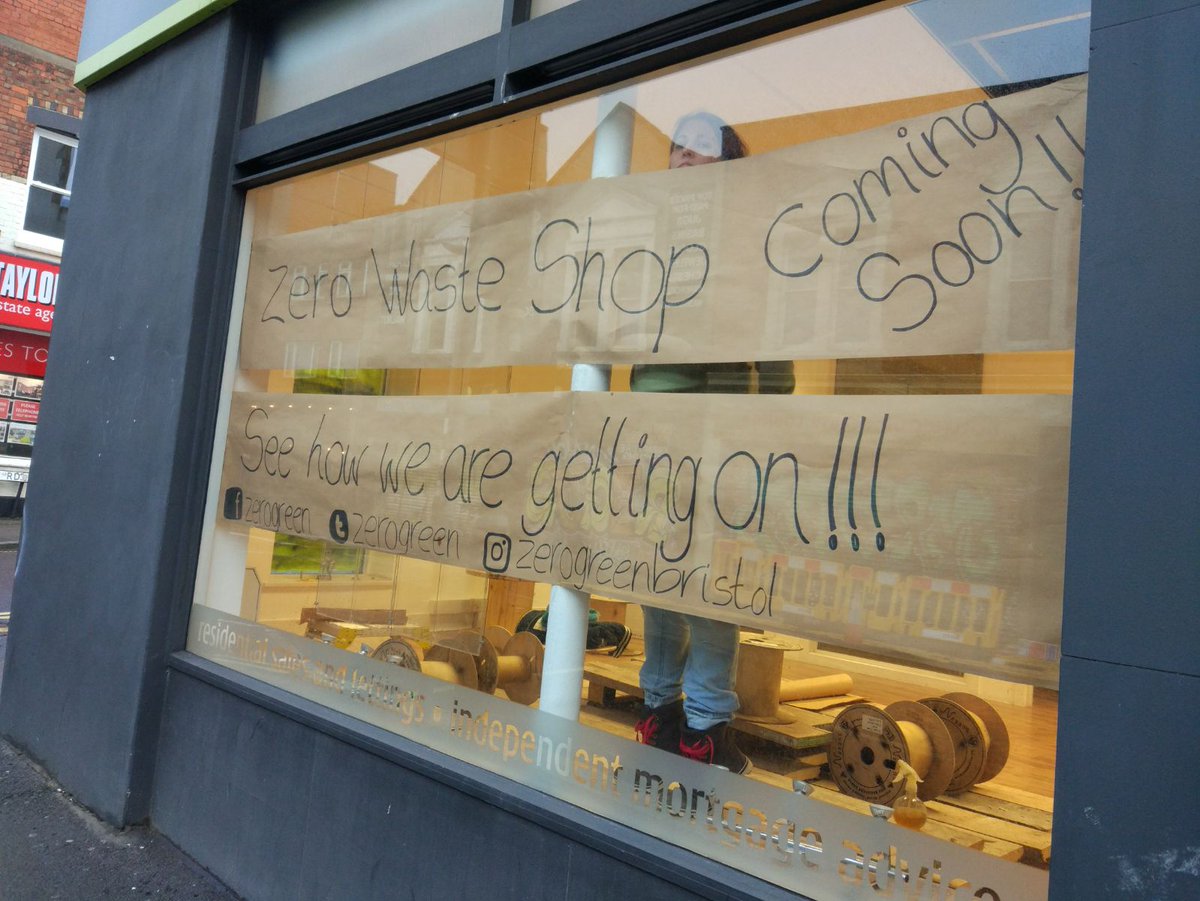 Zero Waste Shop Coming
Soon!!
See how we are getting on!!!
zerogreen zerogreen zerogreenbristol
residential sales and lettings • independent mortgage advice
TAYLO
state age
ES TO
RD